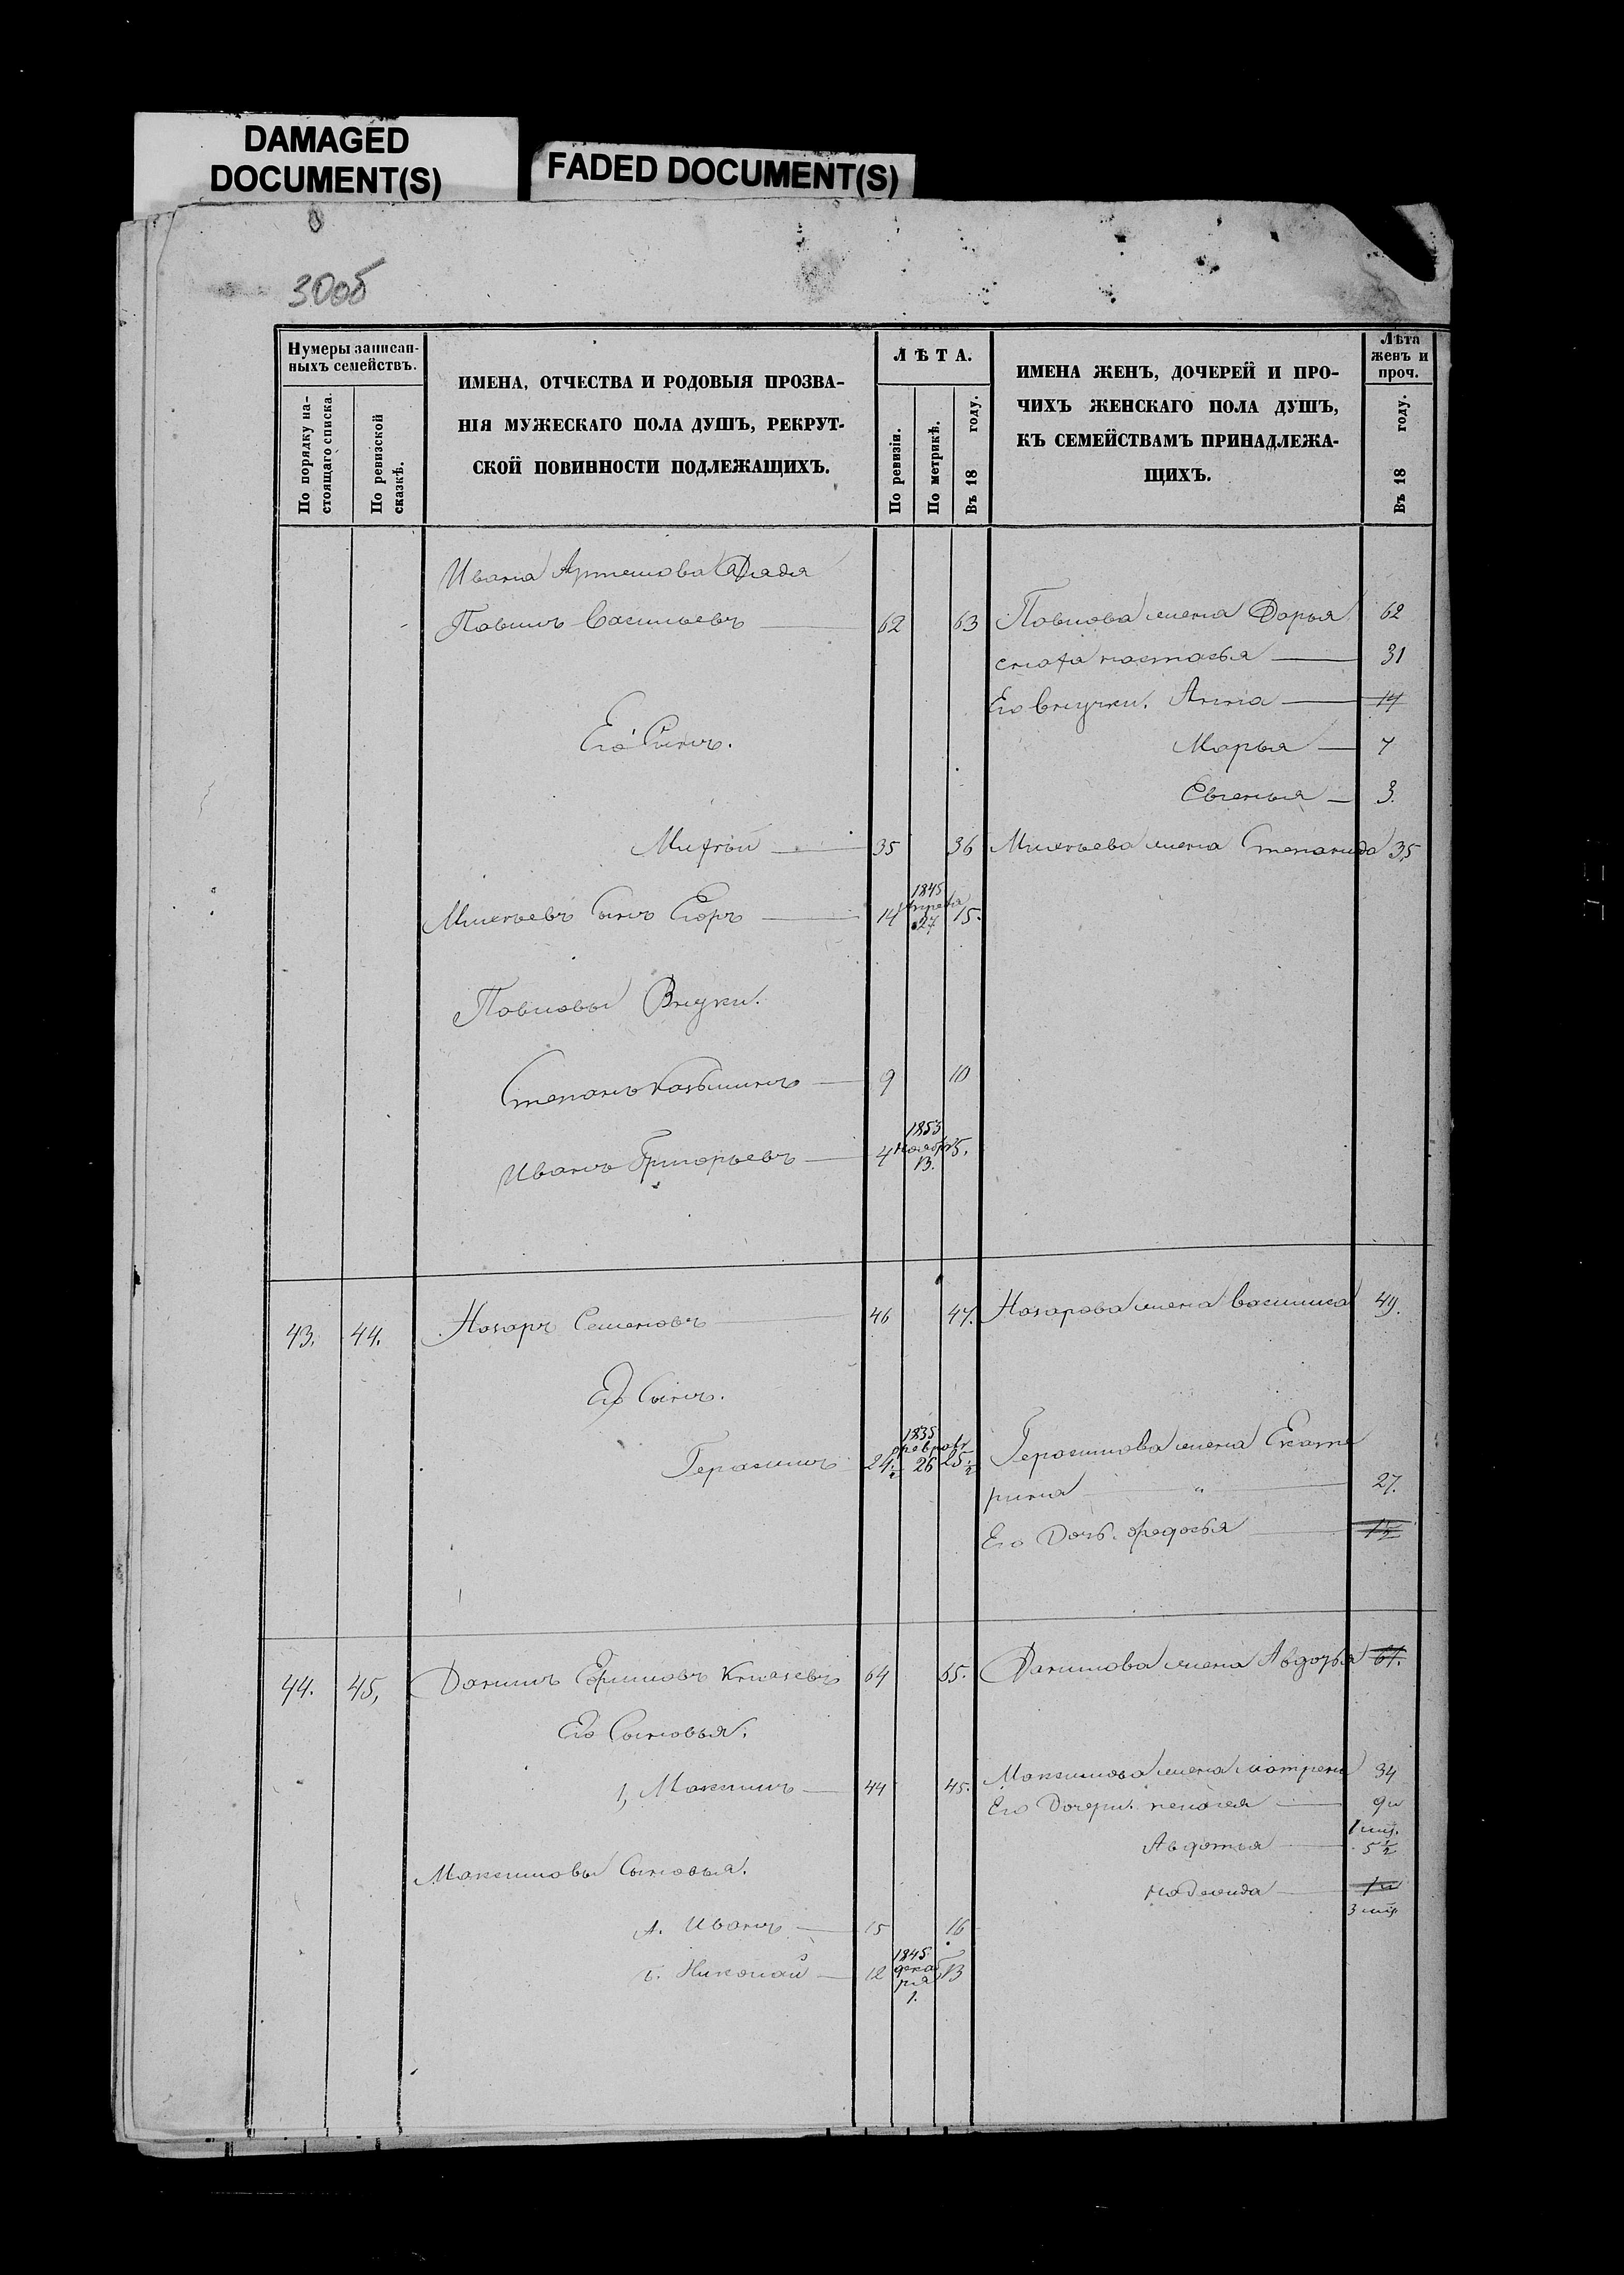 DAMAGED
DOCUMENT(S)
FADED DOCUMENT(S)
30об
Нумеры записан-
ныхъ семействъ.
По порядку на-
стоящаго списка.
По ревизской
сказкѣ.
ИМЕНА, ОТЧЕСТВА И РОДОВЫЯ ПРОЗВА-
НІЯ МУЖЕСКАГО ПОЛА ДУШЪ, РЕКРУТ-
СКОЙ ПОВИННОСТИ ПОДЛЕЖАЩИХЪ.
ЛѢТА.
По ревизіи.
По метрикѣ.
Въ 18 году.
ИМЕНА ЖЕНЪ, ДОЧЕРЕЙ И ПРО-
ЧИХЪ ЖЕНСКАГО ПОЛА ДУШЪ,
КЪ СЕМЕЙСТВАМЪ ПРИНАДЛЕЖА-
ЩИХЪ.
Лѣта
женъ и
проч.
Въ 18 году.
Ивана Артемова Дядя
Павилъ Васильевъ 62 63 Павлова жена Дарья 62
сноха настасья 31
Его внучки. Анна 14
Его Сынъ.
Марья 7
Евгенья 3.
Михѣй 35 36 Михѣева жена Степанида 35
Михѣевъ Сынъ Егоръ 14 1845 Апреля 27 15.
Павловы Внуки.
Степанъ Казьминъ 9 10
Иванъ Григорьевъ 4 1853 Ноября 13. 5.
43. 44. Назаръ Семеновъ 46 47. Назарова жена Василиса 49.
Его Сынъ.
Герасимъ 24 1/2 1835 февраля 26 25 1/2 Герасимова жена Екате
рина " 27.
Его Дочь. Федосья
44. 45, Данилъ Ефимовъ Князевъ 64 65. Данилова жена Авдотья 61.
Его Сыновья.
1, Максимъ 44 45. Максимова жена Матрена 34
Его Дочери. пелагея
Авдотья 5 1/2
Максимовы Сыновья.
А. Иванъ 15 16
Б. Николай 12 1845 дека
ря
1. 13